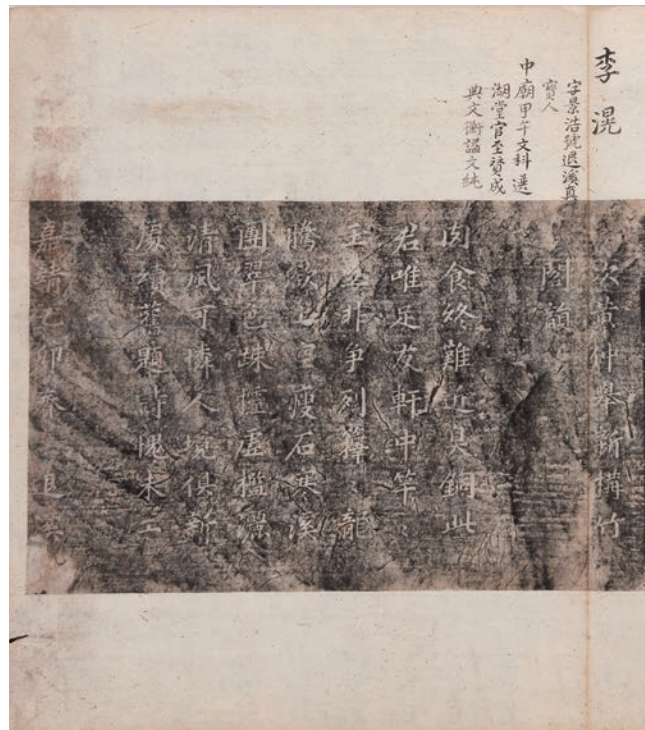 李滉
字景浩號退溪真
寶人
中廟甲午文科選
湖堂官至贊成
典文衡謚文純
次黃仲舉新構竹
閣韻
肉食終難近臭銅此
君唯足友軒中竿〻
玉立非争列籜〻龍
騰欲上空瘦石寒溪
團翠色踈欞虛檻灑
清風可憐人境俱新
處續舊題詩愧未工
嘉靖乙卯